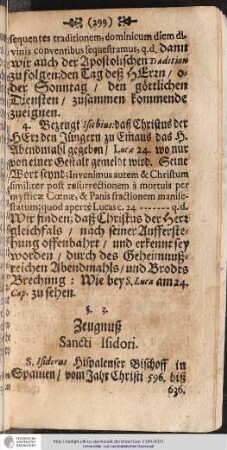 (299)
sequentes traditionem, dominicum diem di-
vinis conventibus sequestramus, q.d. damit
wir auch der Apostolischen Tradition
zu folgen: den Tag deß HErzn / o-
der Sonntag / den göttlichen
Diensten / zusammen kommende
zueignen.
4. Bezeugt Isichius: daß Christus der
HErz den Jüngern zu Emaus das H.
Abendmahl gegeben / Lucæ 24. wo nur
von einer Gestalt gemeldt wird. Seine
Wort seynd: Invenimus autem & Christum
similiter post resurrectionem à mortuis per
mysticæ Cœnæ, & Panis fractionem manife-
statum; quod apertè Lucas c. 24 ------- q.d.
Wir finden; daß Christus der Herz
gleichfals / nach seiner Aufferste-
hung offenbahrt / und erkennt sey
worden / durch des Geheimnuß-
reichen Abendmahls / und Brodts
Brechung: Wie bey S. Luca am 24.
Cap. zu sehen.
§. 3.
Zeugnuß
Sancti Isidori.
S. Isidorus Hispalenser Bischoff in
Spanien / vom Jahr Christi 596. biß
636.